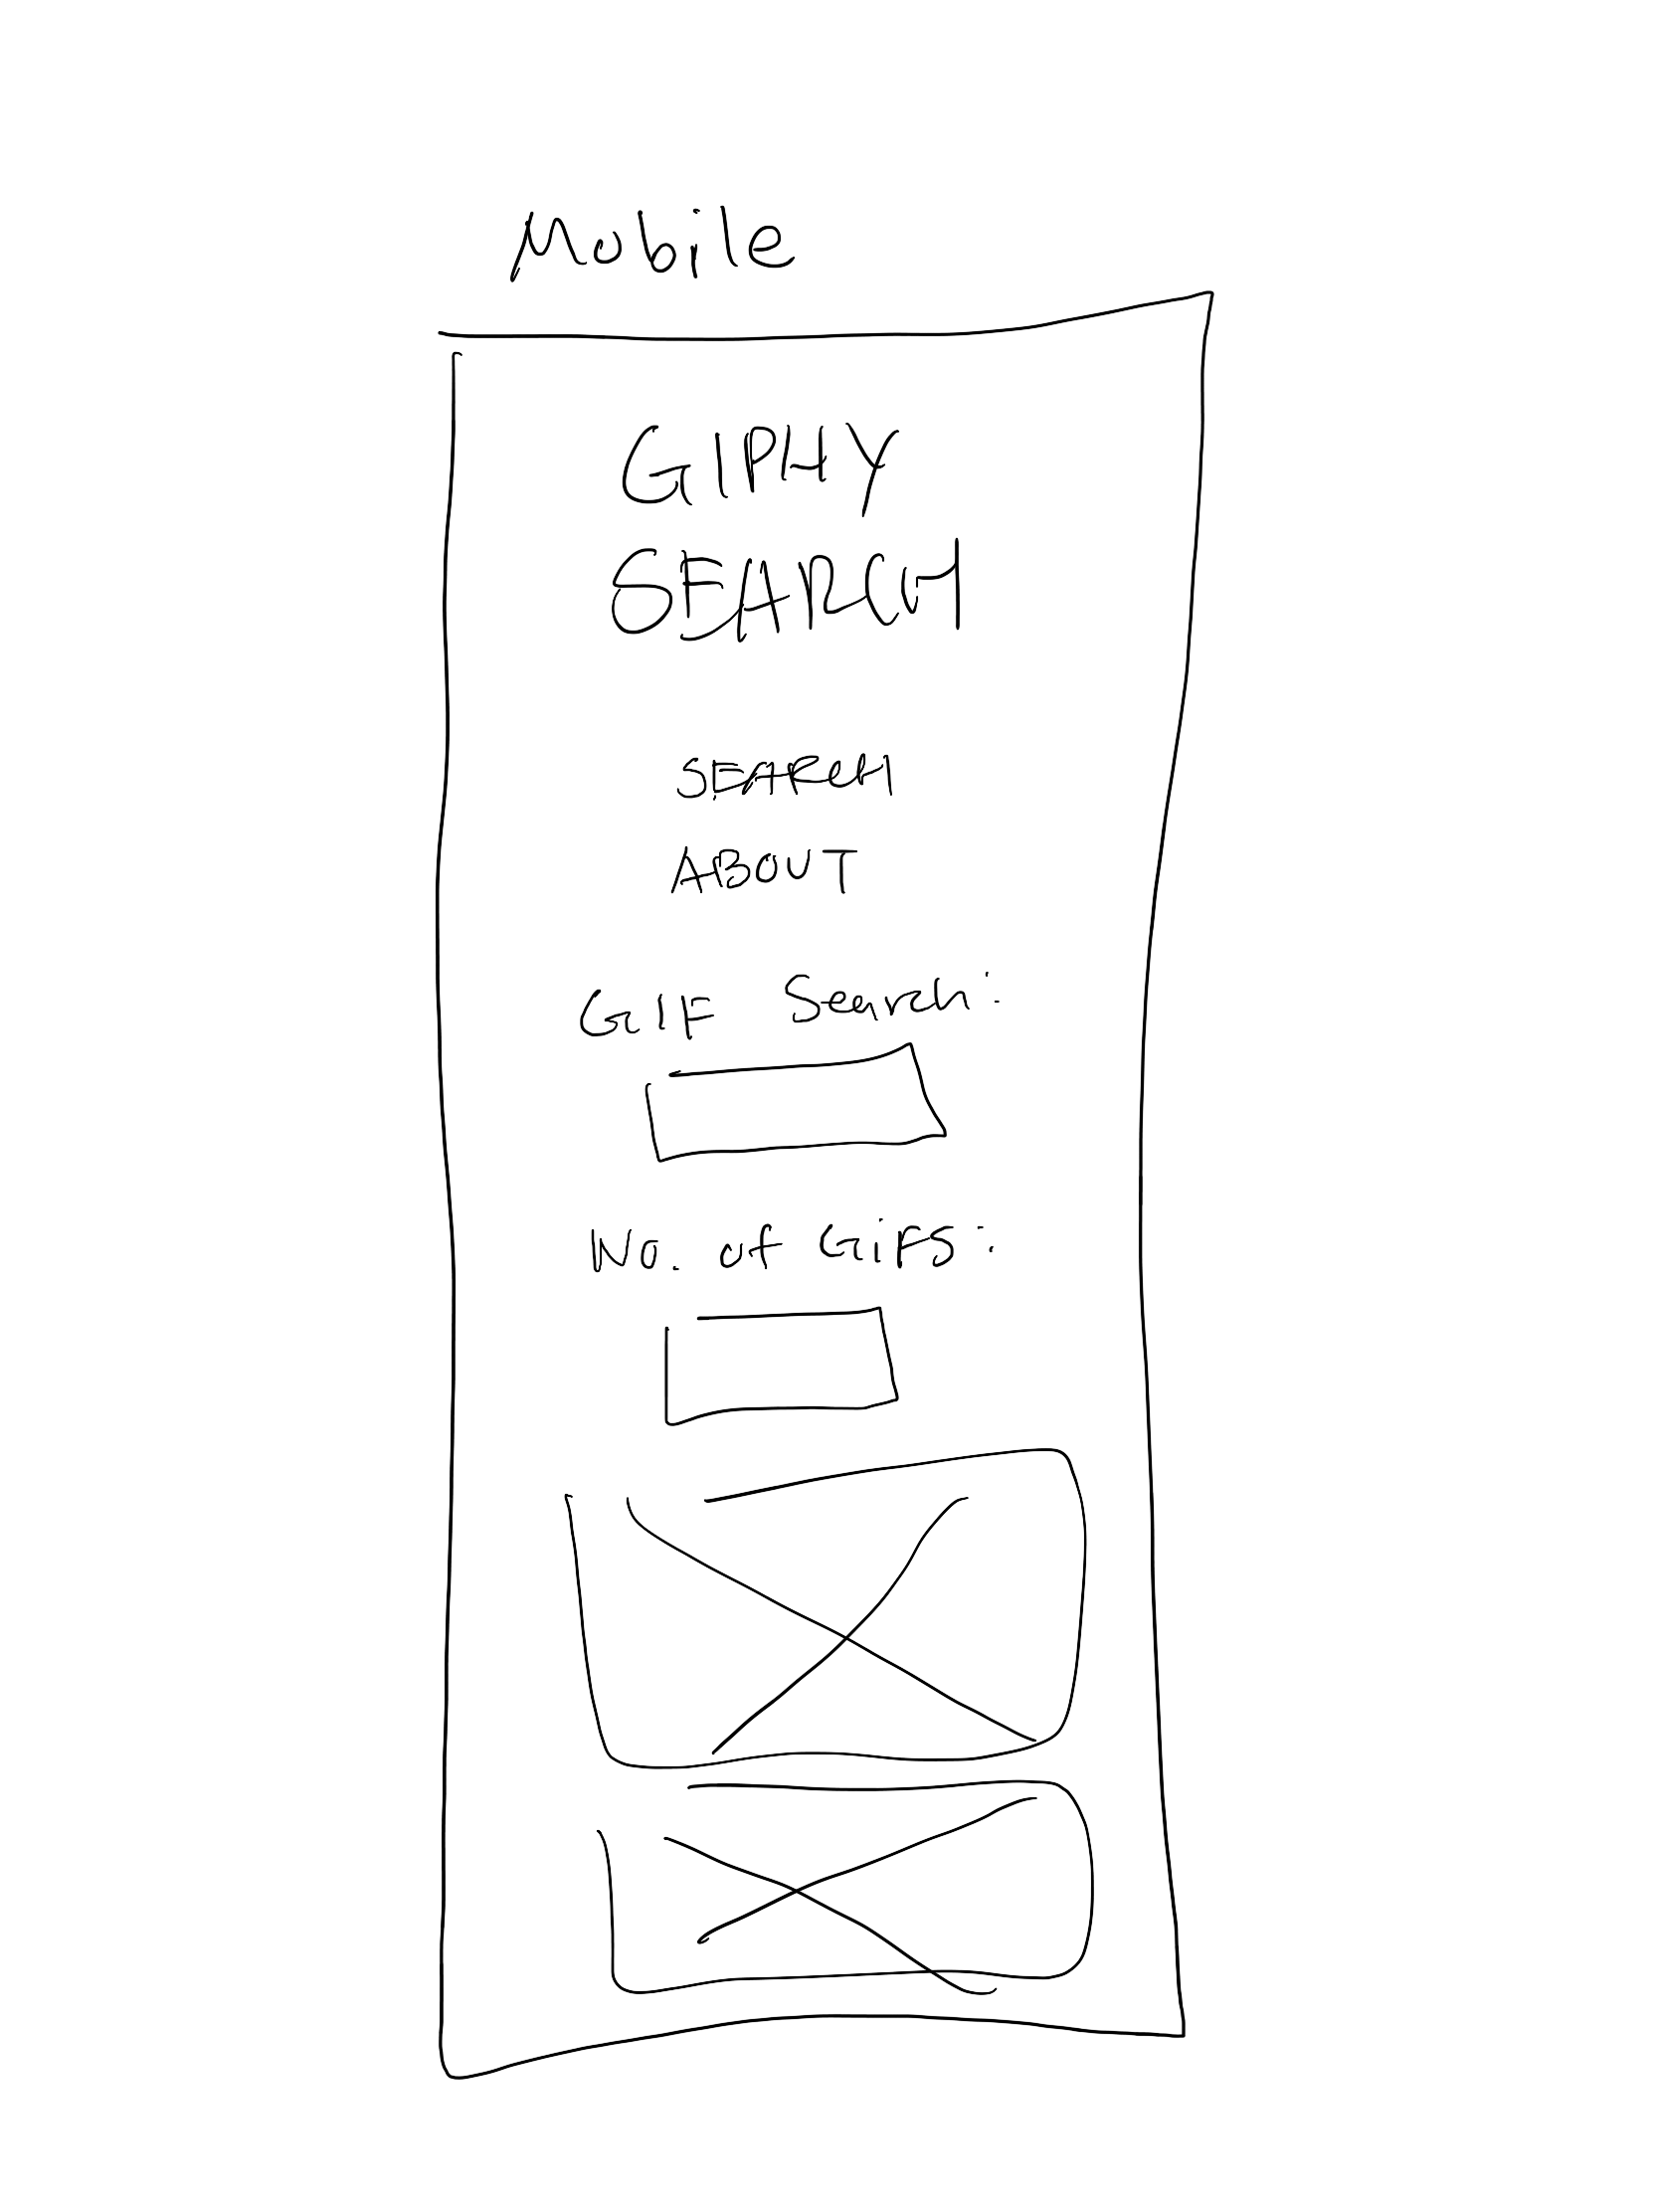 Mobile
GIPHY
SEARCH
SEARCH
ABOUT
GIF Search:
No. of GIFS: